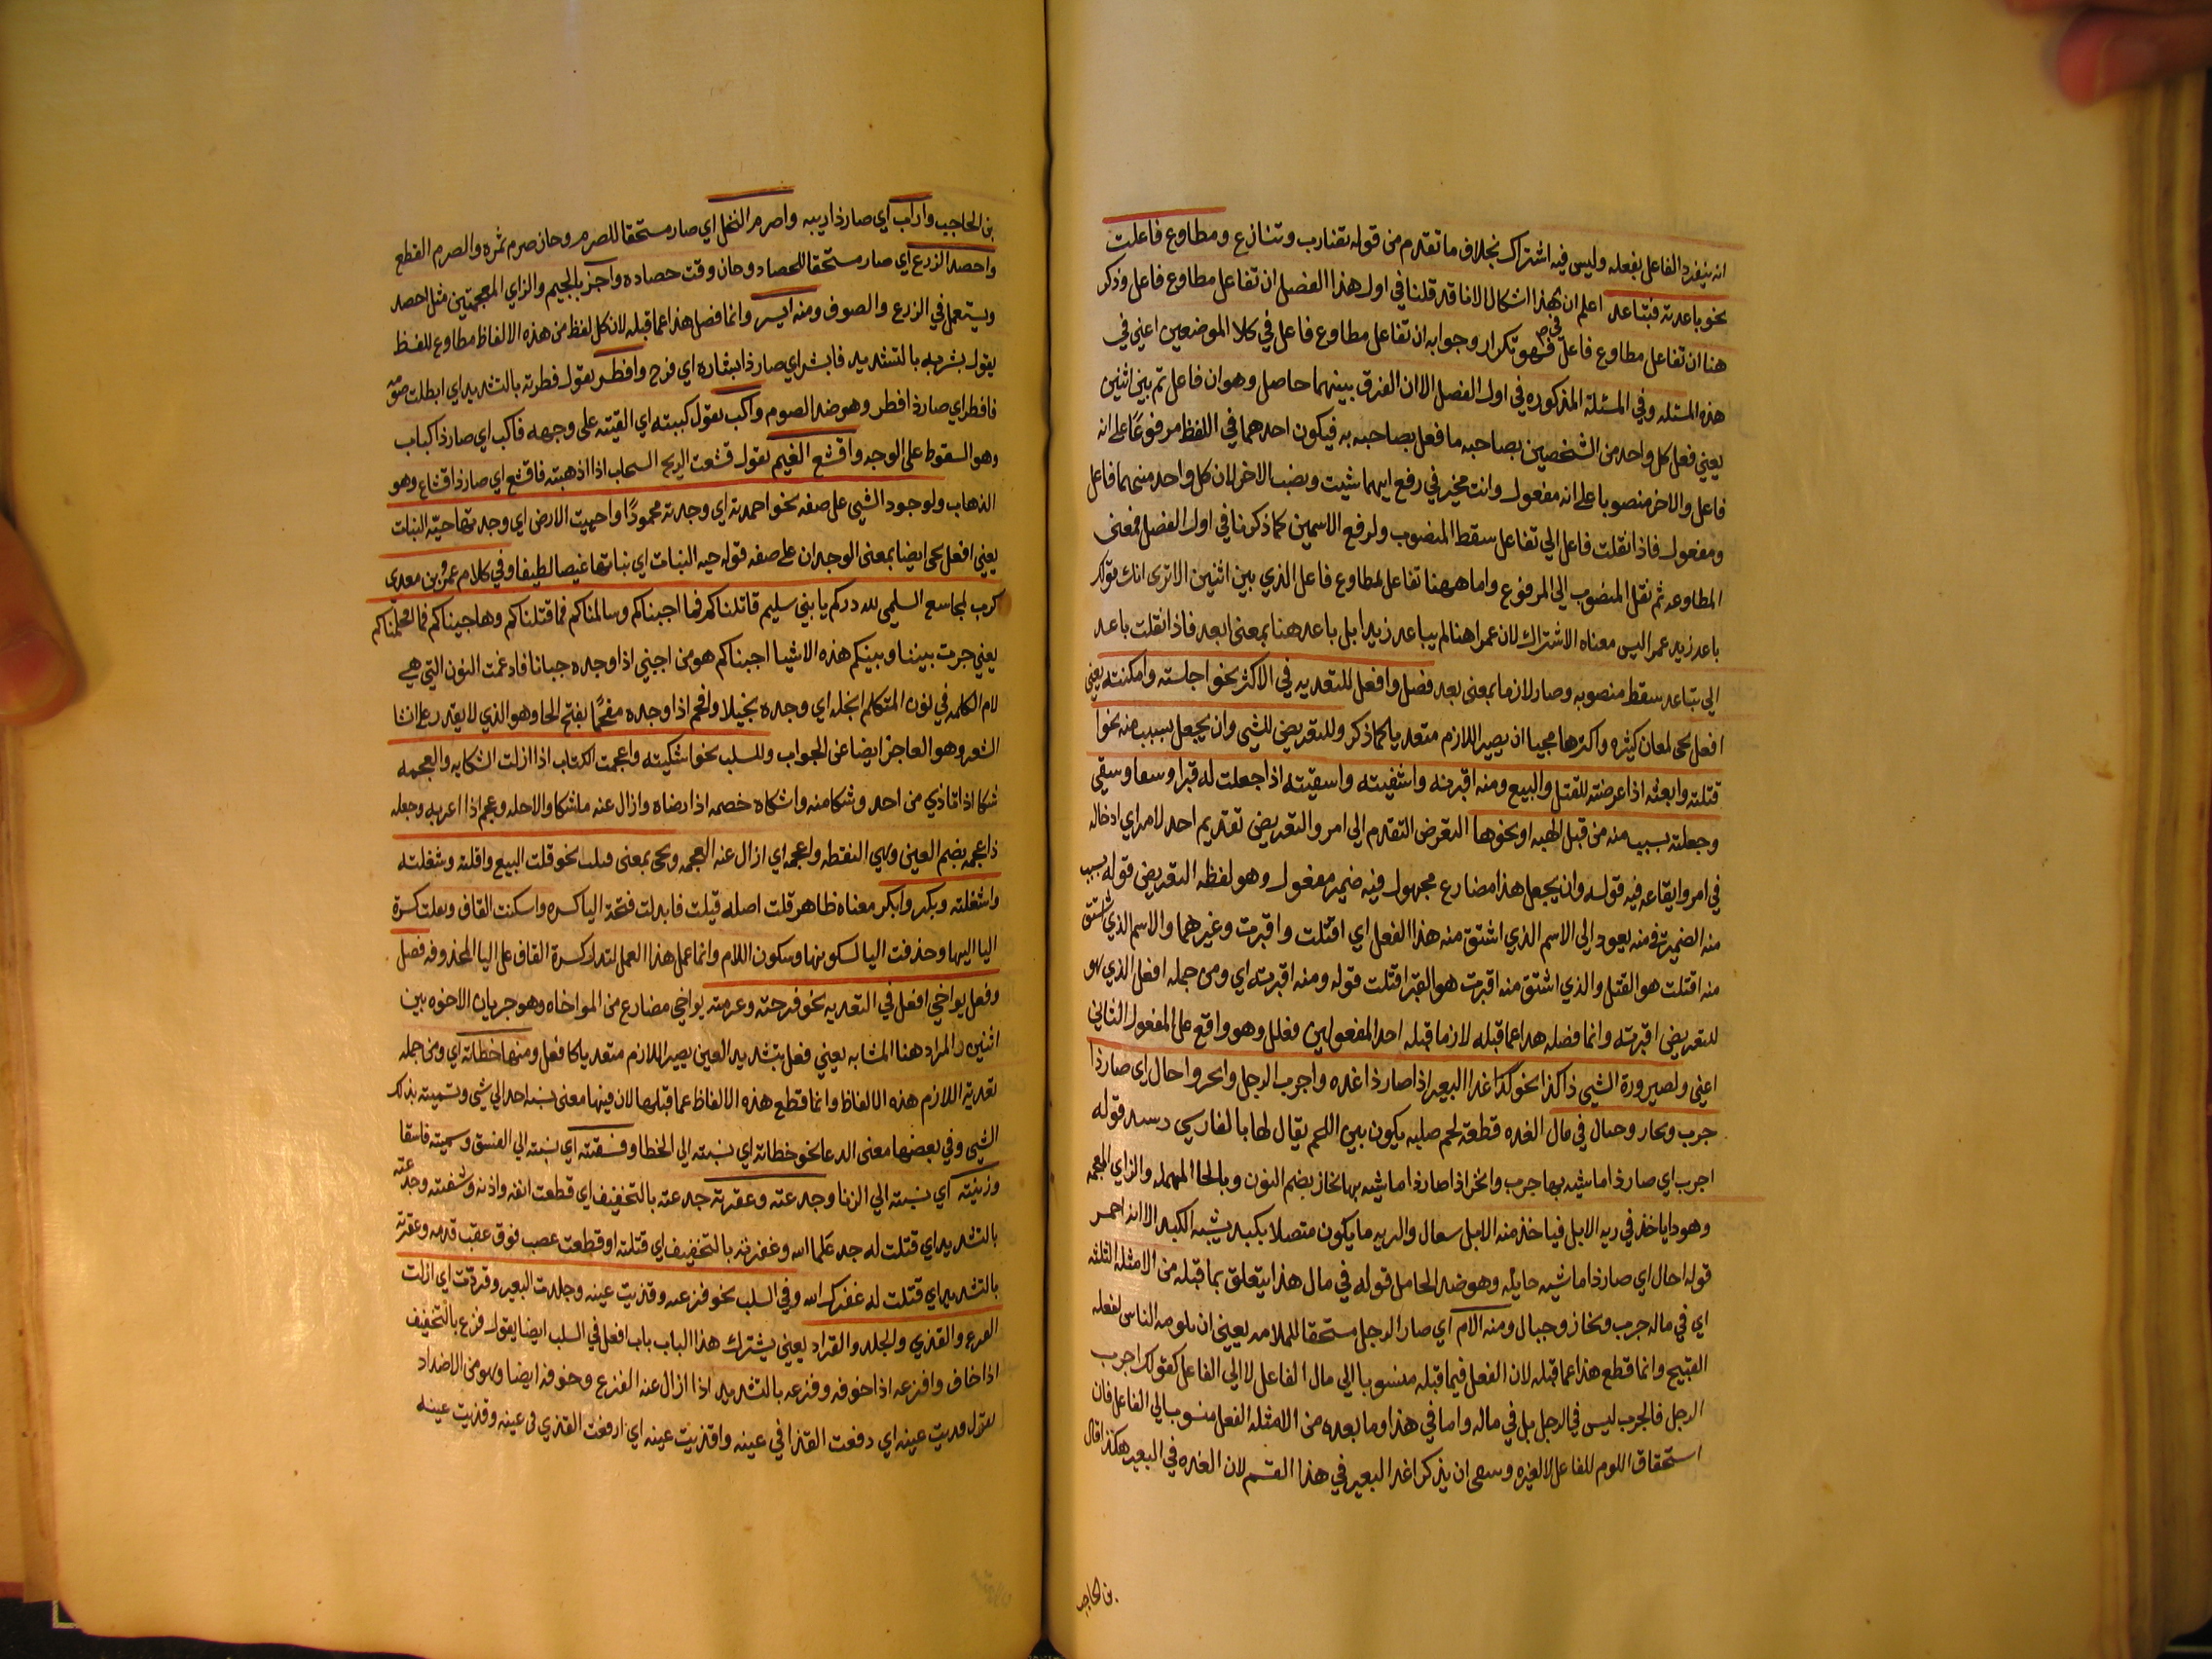 انه ينفرد الفاعل بفعله وليس فيه اشتراك بخلاف ما تقدم من قوله تقارب وتنازع ومطاوع فاعلت
نحو باعدته فتباعد اعلم ان بهذا اشكال لانا قد قلنا في اول هذا الفصل ان تفاعل مطاوع فاعل وذكر
هنا ان تفاعل مطاوع فاعل فهو تكرار وجوابه ان تفاعل مطاوع فاعل في كلا الموضعين اعني في
هذه المسئله وفي المسئلة المذكوره في اول الفصل الا ان الفرق بينهما حاصل وهو ان فاعل ثم بين اثنين
يعني فعل كل واحد من الشخصين بصاحبه ما فعل بصاحبه به فيكون احدهما في اللفظ مرفوعًا على انه
فاعل والاخر منصوبا على انه مفعول وانت مخير في رفع ايهما شيت ونصب الاخر لان كل واحد منهما فاعل
ومفعول فاذا نقلت فاعل الي تفاعل سقط المنصوب ولرفع الاسمين كما ذكرنا في اول الفصل فمعنى
المطاوعه ثم نقل المنصوب الى المرفوع واما ههنا تفاعل لمطاوع فاعل الذي بين اثنين الا ترى انك تقولك
باعد زيد عمرا ليس معناه الاشتراك لان عمرا هنا لم يباعد زيدا بل باعد هنا بمعنى ابعد فاذا نقلت باعد
الي تباعد سقط منصوبه وصار لازما بمعنى بعد فصل وافعل للتعديه في الاكثر نحو اجلسته وامكنته يعني
افعل يجى لمعان كثيره واكثرها مجيا ان يصير اللازم متعديا كما ذكر وللتعريض للشى وان يجعل بسبب منه نحو ا
قتلته وابعته اذا عرضته للقتل والبيع ومنه اقبرته واشفيته واسقيته اذا جعلت له قبرا وشفا وسقي
وجعلته بسبب منه من قبل الهبه او نحوها التعرض التقدم الى امر والتعريض تقديم احد لامر اي ادخاله
في امر وايقاعه فيه قوله وان يجعل هذا مضارع مجهول فيه ضمير مفعول وهو لفظه التعريض قوله بسبب
منه الضمير في منه يعود الى الاسم الذي اشتق منه هذا الفعل اي اقتلت واقبرت وغيرهما والاسم الذي اشتق
منه اقتلت هو القتل والذي اشتق منه اقبرت هو القبر اقتلت قوله ومنه اقبرته اي ومن جمله افعل الذي هو
للتعريض اقبرته وانما فصله هذا عما قبله لان ما قبله احد المفعولين وهو واقع على المفعول الثاني
اعني ولصيرورة الشيى ذا كذا نحو كذا اغد البعير اذا صار ذا غده واجرب الرجل وانحز واحال اي صار ذا
جرب ونحاز وحيال في مال الغده قطعة لحم صلبه يكون بين اللحم يقال لها بالفارسي قوله
اجرب اي صار ذا ماشيه بها جرب وانحز اذا صار ذا ماشيه بها نحاز بضم النون وبالحا المهمله والزاي المعجمه
وهو دا ياخذ في ريه الابل فياخذ منه الابل سعال والريه ما يكون متصلا بكبد يشبه الكبد الا انه احمر
قوله احال اي صار ذا ماشيه حايله وهو ضد الحامل قوله في مال هذا يتعلق بما قبله من الامثله الثلثه
اي في ماله جرب ونحاز وحيال ومنه الام اي صار الرجل مستحقا للملامه يعني ان يلومه الناس لفعله
القبيح وانما قطع هذا عما قبله لان الفعل فيما قبله منسوبا الي مال الفاعل لا الى الفاعل كقولك اجرب
الرجل فالجرب ليس في الرجل بل في ماله واما في هذا وما بعده من الامثله الفعل منسوب الي الفاعل فان
استحقاق اللوم للفاعل لا لغيره ان يذكر اغد البعير في هذا القسم لان الغده في البعير هكذا قال
بن الحاجب
بن الحاجب واراب اي صار ذا ريبه واصرم النخل اي صار مستحقا للصرم وحان صرم ثمره والصرم القطع
واحصد الزرع اي صار مستحقا للحصاد وحان وقت حصاده واجز بالجيم والزاي المعجمتين مثل احصد
ويستعمل في الزرع والصوف ومنه ابشر وانما فصل هذا عما قبله لان كل لفظ من هذه الالفاظ مطاوع للفظ
يقول بشرته بالتشديد فابشر اي صار ذا بشاره اي فرح وافطر يقول فطرته بالتشديد اي ابطلت صومه
فافطر اي صار ذا فطر وهو ضد الصوم واكب يقول كببته اي القيته على وجهه فاكب اي صار ذا كباب
وهو السقوط على الوجه واقشع الغيم يقول قشعت الريح السحاب اذا اذهبته فاقشع اي صار ذا قشاع وهو
الذهاب ولوجود الشيى على صفه نحو احمدته اي وجدته محمودًا واحييت الارض اي وجدتها حيّة النبات
يعني افعل يجى ايضا بمعنى الوجدان على صفه قوله حيه النبات اي نباتها لطيفا وفي كلام عمرو بن معدي
كرب لمجاسع السلمي لله دركم يا بني سليم قاتلناكم فما اجبناكم وسالمناكم فما وهاجيناكم فما افحمناكم
يعني جرت بيننا وبينكم هذه الاشيا اجبناكم هو من اجبني اذا وجده جبانا فادغمت النون التي هي
لام الكلمه في نون المتكلم ابخله اي وجده بخيلا وافحم اذا وجده مفحمًا بفتح الحا وهو الذي لا يقدر على انشا
الشعر وهو العاجز ايضا عن الجواب وللسلب نحو اشكيته واعجمت الكتاب اذا ازلت الشكايه والعجمه
شكا اذا تاذي من احد وشكا منه واشكاه خصمه اذا ارضاه وازال عنه ما شكا لاجله وعجم اذا اعربه وجعله
ذا عجمه بضم العين وهي النقطه واعجمه اي ازال عنه العجمه ويجى بمعنى فعلت نحو قلت البيع واقلته وشغلته
واشغلته وبكر وابكر معناه ظاهر قلت اصله قيلت فابدلت فتحة اليا كسره واسكنت القاف ونقلت كسرة
اليا اليها وحذفت اليا لسكونها وسكون اللام وانما عمل هذا العمل لتدل كسرة القاف على اليا المحذوفه فصل
وفعل يواخي افعل في التعديه نحو فرحته وغرمته يواخي مضارع من المواخاه وهو جريان الاخوه بين
اثنين والمراد هنا المشابه يعني فعل بتشديد العين يصير اللازم متعديا كافعل ومنها خطاته اي ومن جمله
تعدية اللازم هذه الالفاظ وانما قطع هذه الالفاظ عما قبلها لان فيها معنى نسبة احد الي شي وتسميته بذلك
الشي وفي بعضها معنى الدعا نحو خطاته اي نسبته الى الخطا وفسقته اي نسبته الي الفسق وسميته فاسقا
وزنيته اي نسبته الي الزنا وجدعته وعقرته جدعته بالتخفيف اي قطعت انفه واذنه وشفته وجدعته
بالتشديد اي قتلت له جدعك الله وعقرته بالتخفيف اي قتلته او قطعت عصب فوق عقب قدمه وعقرته
بالتشديد اي قتلت له عقرك الله وفي السلب نحو فزعته وقذيت عينه وجلدت البعير وقردّت اي ازلت
الفزع والقذي والجلد والقراد يعني يشترك هذا الباب باب افعل في السلب ايضا يقول فزع بالتخفيف
اذا خاف وافزعه اذا خوفه وفزعه بالتشديد اذا ازال عنه الفزع وخوفه ايضا وهو من الاضداد
يقول قذيت عينه اي دفعت القذا في عينه واقذيت عينه اي ارفعت القذي في عينه وقذيت عينه